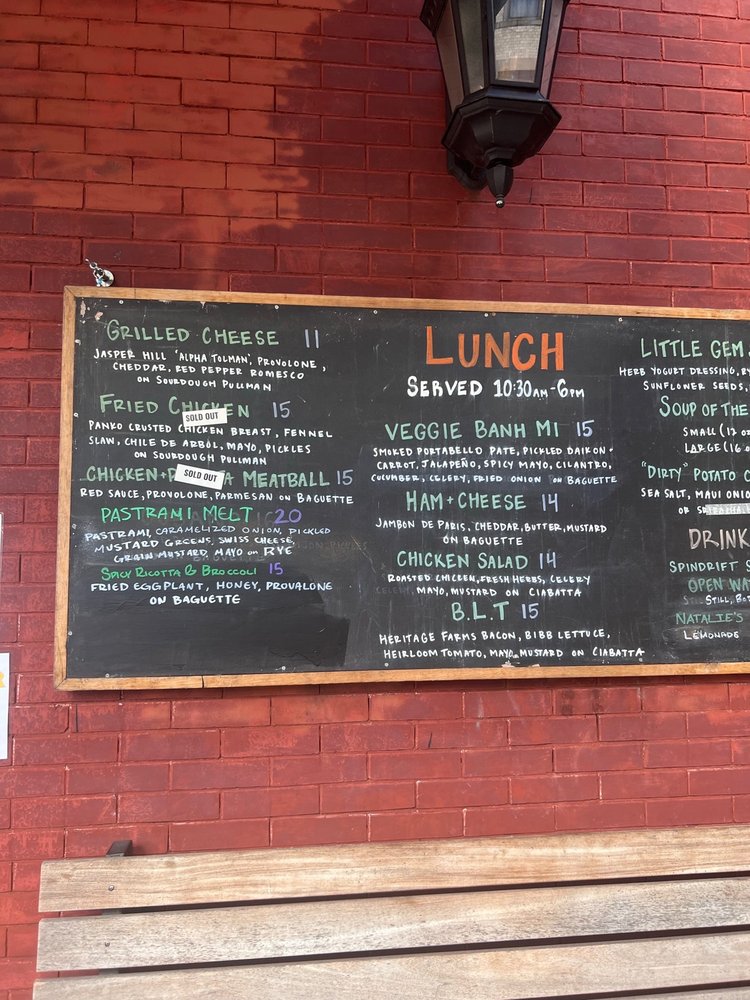 GRILLED CHEESE 11
JASPER HILL 'ALPHA TOLMAN', PROVOLONE,
CHEDDAR, RED PEPPER ROMESCO
ON SOURDOUGH PULLMAN
FRIED CHICKEN 15
SOLD OUT
PANKO CRUSTED CHICKEN BREAST, FENNEL
SLAW, CHILE DE ARBOL, MAYO, PICKLES
ON SOURDOUGH PULLMAN
CHICKEN+ A MEATBALL 15
SOLD OUT
RED SAUCE, PROVOLONE, PARMESAN ON BAGUETTE
PASTRAMI MELT 20
PASTRAMI, CARAMELIZED ONION, PICKLED
MUSTARD GREENS, SWISS CHEESE,
GRAIN MUSTARD, MAYO ON RYE
SPICY RICOTTA & BROCCOLI 15
FRIED EGGPLANT, HONEY, PROVALONE
ON BAGUETTE
LUNCH
SERVED 10:30AM-6PM
VEGGIE BANH MI 15
SMOKED PORTABELLO PATE, PICKLED DAIKON+
CARROT, JALAPEÑO, SPICY MAYO, CILANTRO,
CUCUMBER, CELERY, FRIED ONION ON BAGUETTE
HAM+CHEESE 14
JAMBON DE PARIS, CHEDDAR, BUTTER, MUSTARD
ON BAGUETTE
CHICKEN SALAD 14
ROASTED CHICKEN, FRESH HERBS, CELERY
MAYO, MUSTARD ON CIABATTA
B.L.T 15
HERITAGE FARMS BACON, BIBB LETTUCE,
HEIRLOOM TOMATO, MAYO, MUSTARD ON CIABATTA
LITTLE GEM
HERB YOGURT DRESSING, RY
SUNFLOWER SEEDS,
SOUP OF THE
SMALL (12 OZ
LARGE (16 O
"DIRTY" POTATO C
SEA SALT, MAUI ONIO
OR
DRINK
SPINDRIFT S
OPEN WAT
STILL, BO
NATALIE'S
LEMONADE